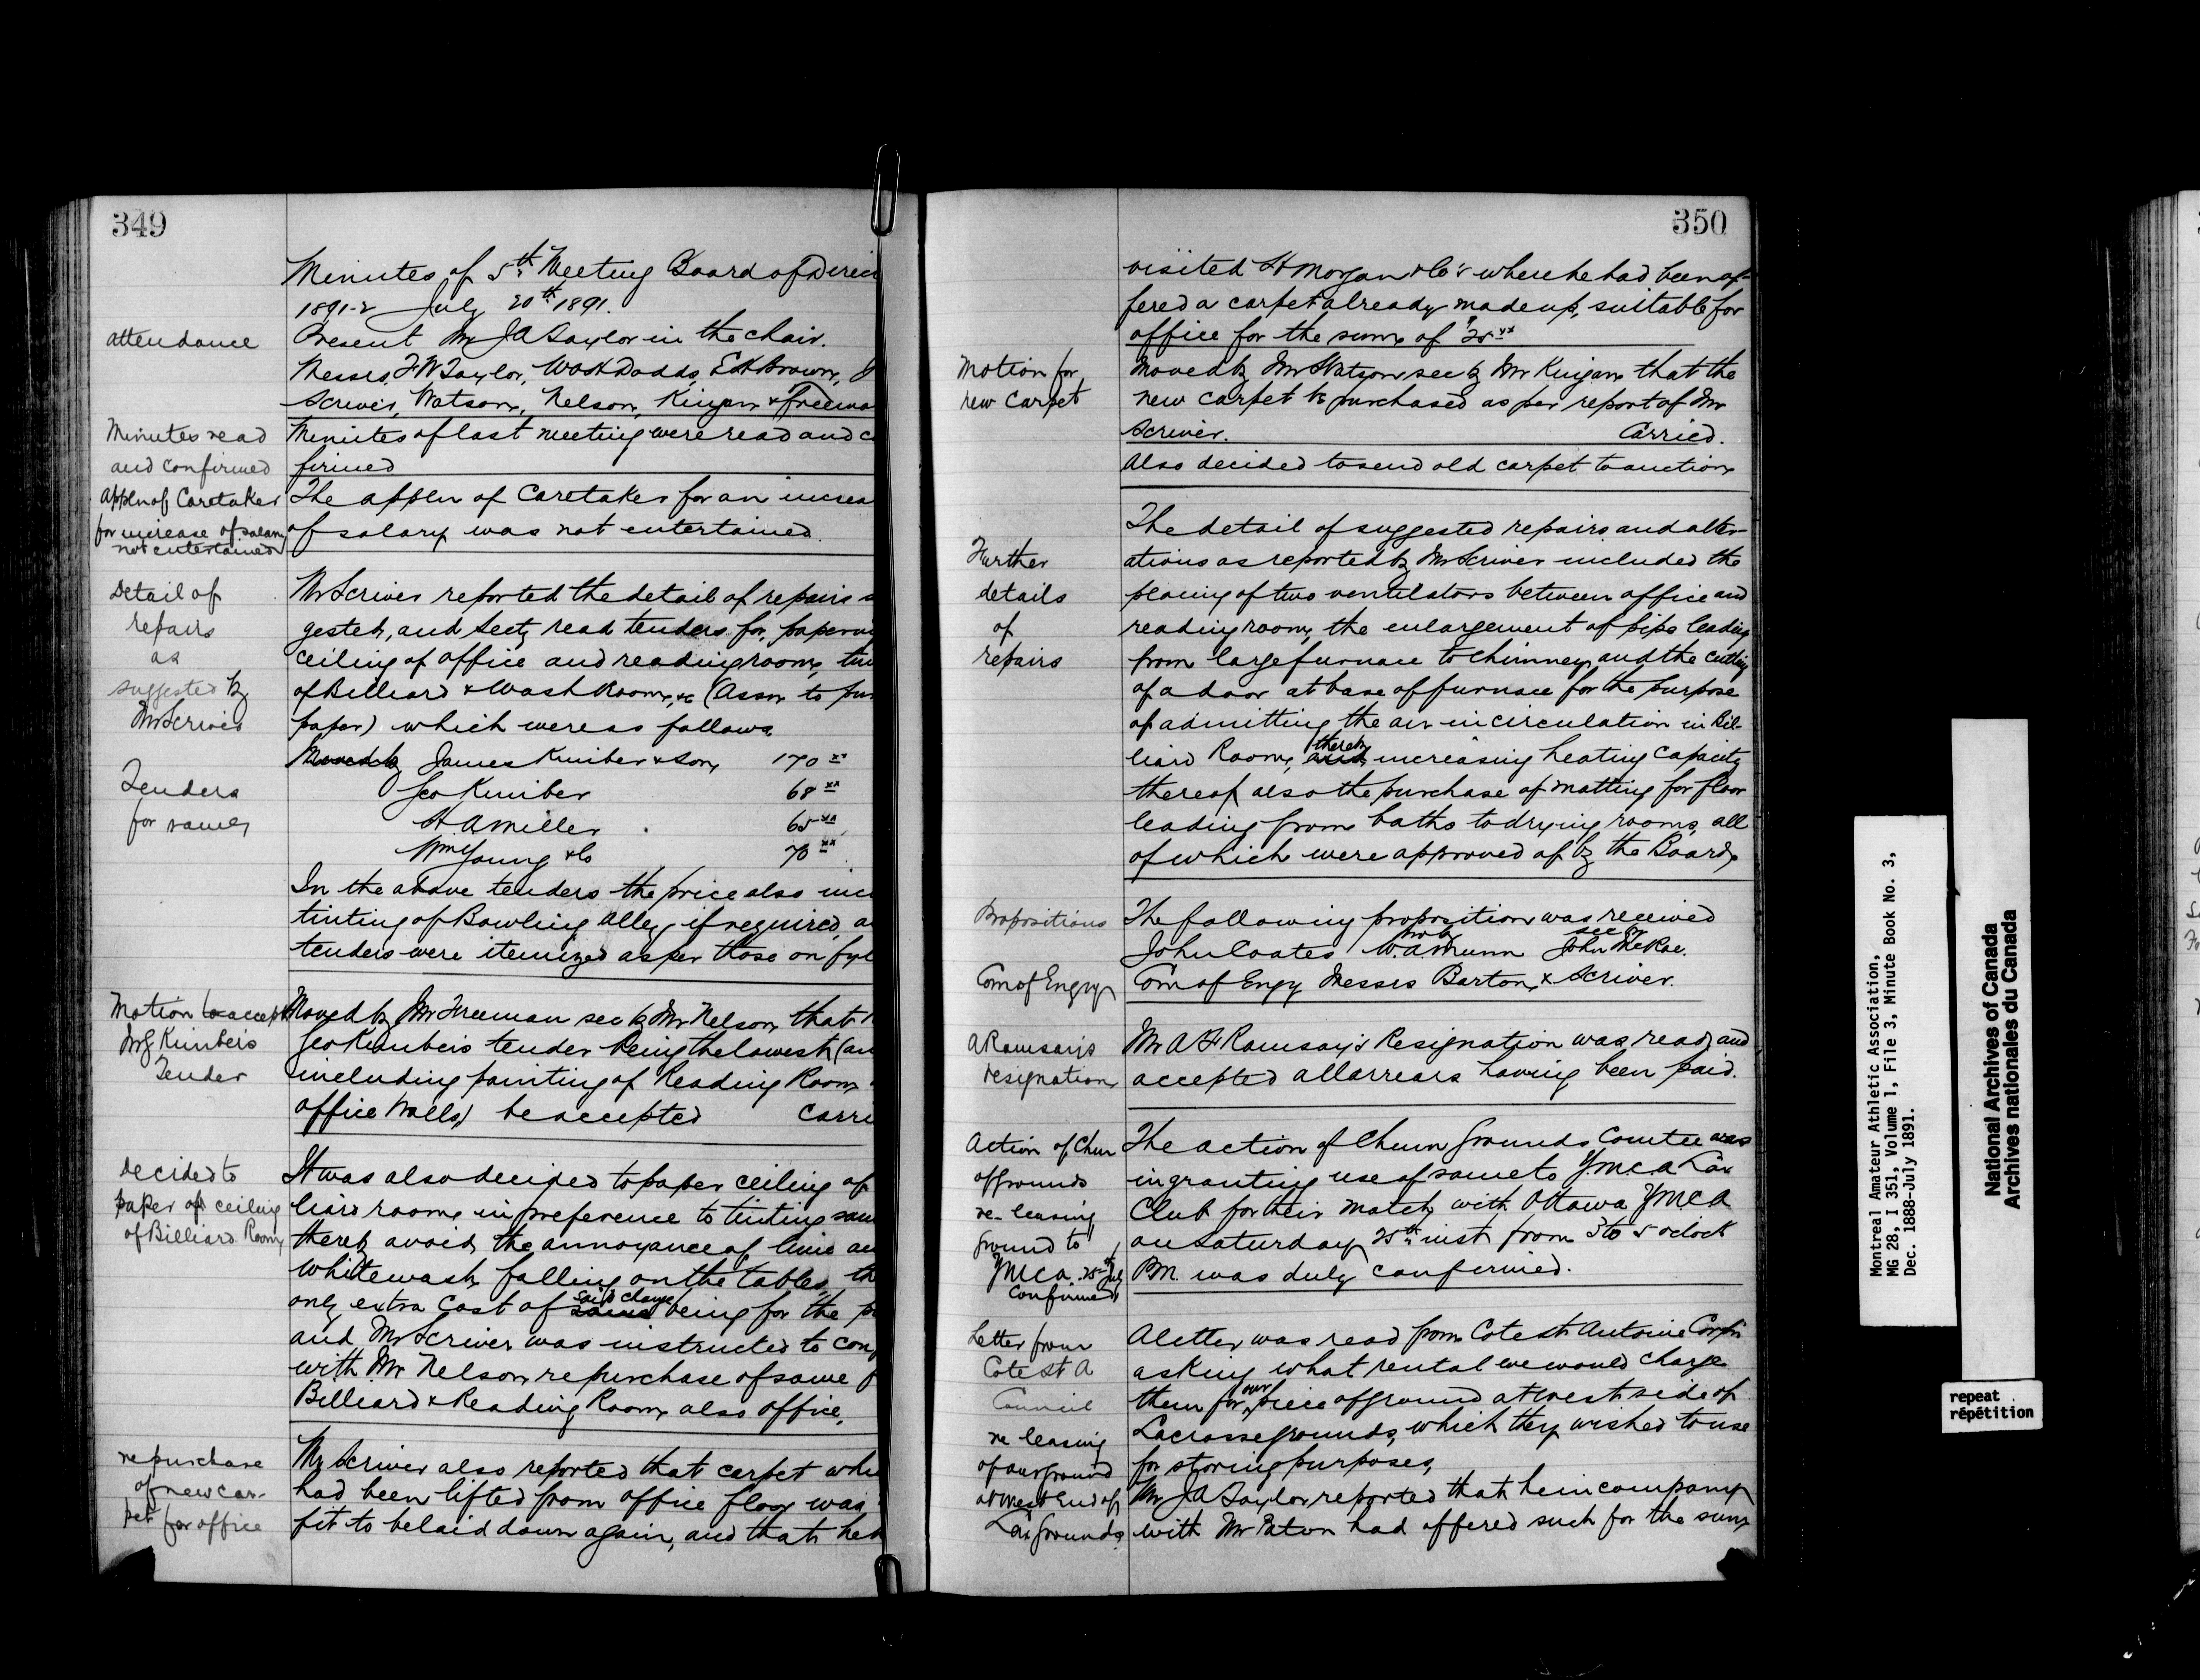 349
Minutes of 5th Meeting Board of Direc
1891-2 July 20th 1891.
attendance
Present Mr J A Taylor in the chair.
Messrs F W Taylor, Dodds, E H Brown, J
Scriver, Watson, Nelson, Kingan & Freema
Minutes read
and confirmed
Minutes of last meeting were read and c
firmed
Appln of Caretaker
for increase of salary
not entertained
The appln of Caretaker for an increa
of salary was not entertained.
Detail of
repairs
as
suggested by
Mr Scriver
Mr Scriver reported the detail of repairs s
gested, and Secty read tenders for papering
ceiling of office and reading room, tin
of Billiard & Wash Room, &c (Assn to pur
paper) which were as follows
Tenders
for same
Moved by James Kimber & Son 170 xx
Geo Kimber 68 xx
H. A Miller 65 xx
Wm Young & Co 70 xx
In the above tenders the price also inc
tinting of Bowling Alley, if required, a
tenders were itemized as per those on fyl
Motion to accept
Mr G Kimber's
Tender
Moved by Mr Freeman sec by Mr Nelson that
Geo Kimbers tender being the lowest (an
including painting of Reading Room
office walls) be accepted Carri
Decided to
paper of ceiling
of Billiard Room
It was also decided to paper ceiling of
liard room in preference to tinting sam
thereby avoid the annoyance of lime an
whitewash falling on the tables, th
only extra cost of same said change being for the p
and Mr Scriver was instructed to con
with Mr Nelson re purchase of same f
Billiard & Reading Room also office.
re purchase
of new car-
pet for office
Mr Scriver also reported that carpet whi
had been lifted from office floor was
fit to be laid down again, and that he h
350
visited H Morgan & Co's where he had been of-
fered a carpet already made up, suitable for
office for the sum of $25 xx
Motion for
new carpet
Moved by Mr Watson sec by Mr Kingan that the
new carpet be purchased as per report of Mr
Scriver. Carried.
Also decided to send old carpet to auction
Further
details
of
repairs
The detail of suggested repairs and alter-
ations as reported by Mr Scriver included the
placing of two ventilators between office and
reading room, the enlargement of pipe leading
from large furnace to chimney, and the cutting
of a door at base of furnace for the purpose
of admitting the air in circulation in Bil-
liard Room, and thereby increasing heating capacity
thereof also the purchase of matting for floor
leading from baths to drying rooms, all
of which were approved of by the Board.
Propositions
The following proposition was received
John Coates mov by W. A Munn sec by John McRae.
Com of Engy
Com of Engy Messrs Barton & Scriver.
A Ramsay's
resignation
Mr A H Ramsay's Resignation was read and
accepted all arrears having been paid.
Action of Chm
of grounds
re-leasing
ground to
YMCA. 25th July
Confirmed
The action of Chmn Grounds Comtee was
in granting use of same to Y.M.C.A Lax
Club for their match with Ottawa YMCA
on Saturday 25th inst from 3 to 5 oclock
P.M. was duly confirmed.
Letter from
Cote St A
Council
re leasing
of our ground
at west End of
Lax Grounds
A letter was read from Cote St Antoine Corp'n
asking what rental we would charge
them for our piece of ground at west side of
Lacrosse grounds, which they wished to use
for storing purposes,
Mr J A Taylor reported that he in company
with Mr Paton had offered such for the sum
Montreal Amateur Athletic Association,
MG 28, I 351, Volume 1, File 3, Minute Book No. 3,
Dec. 1888-July 1891.
National Archives of Canada
Archives nationales du Canada
repeat
répétition